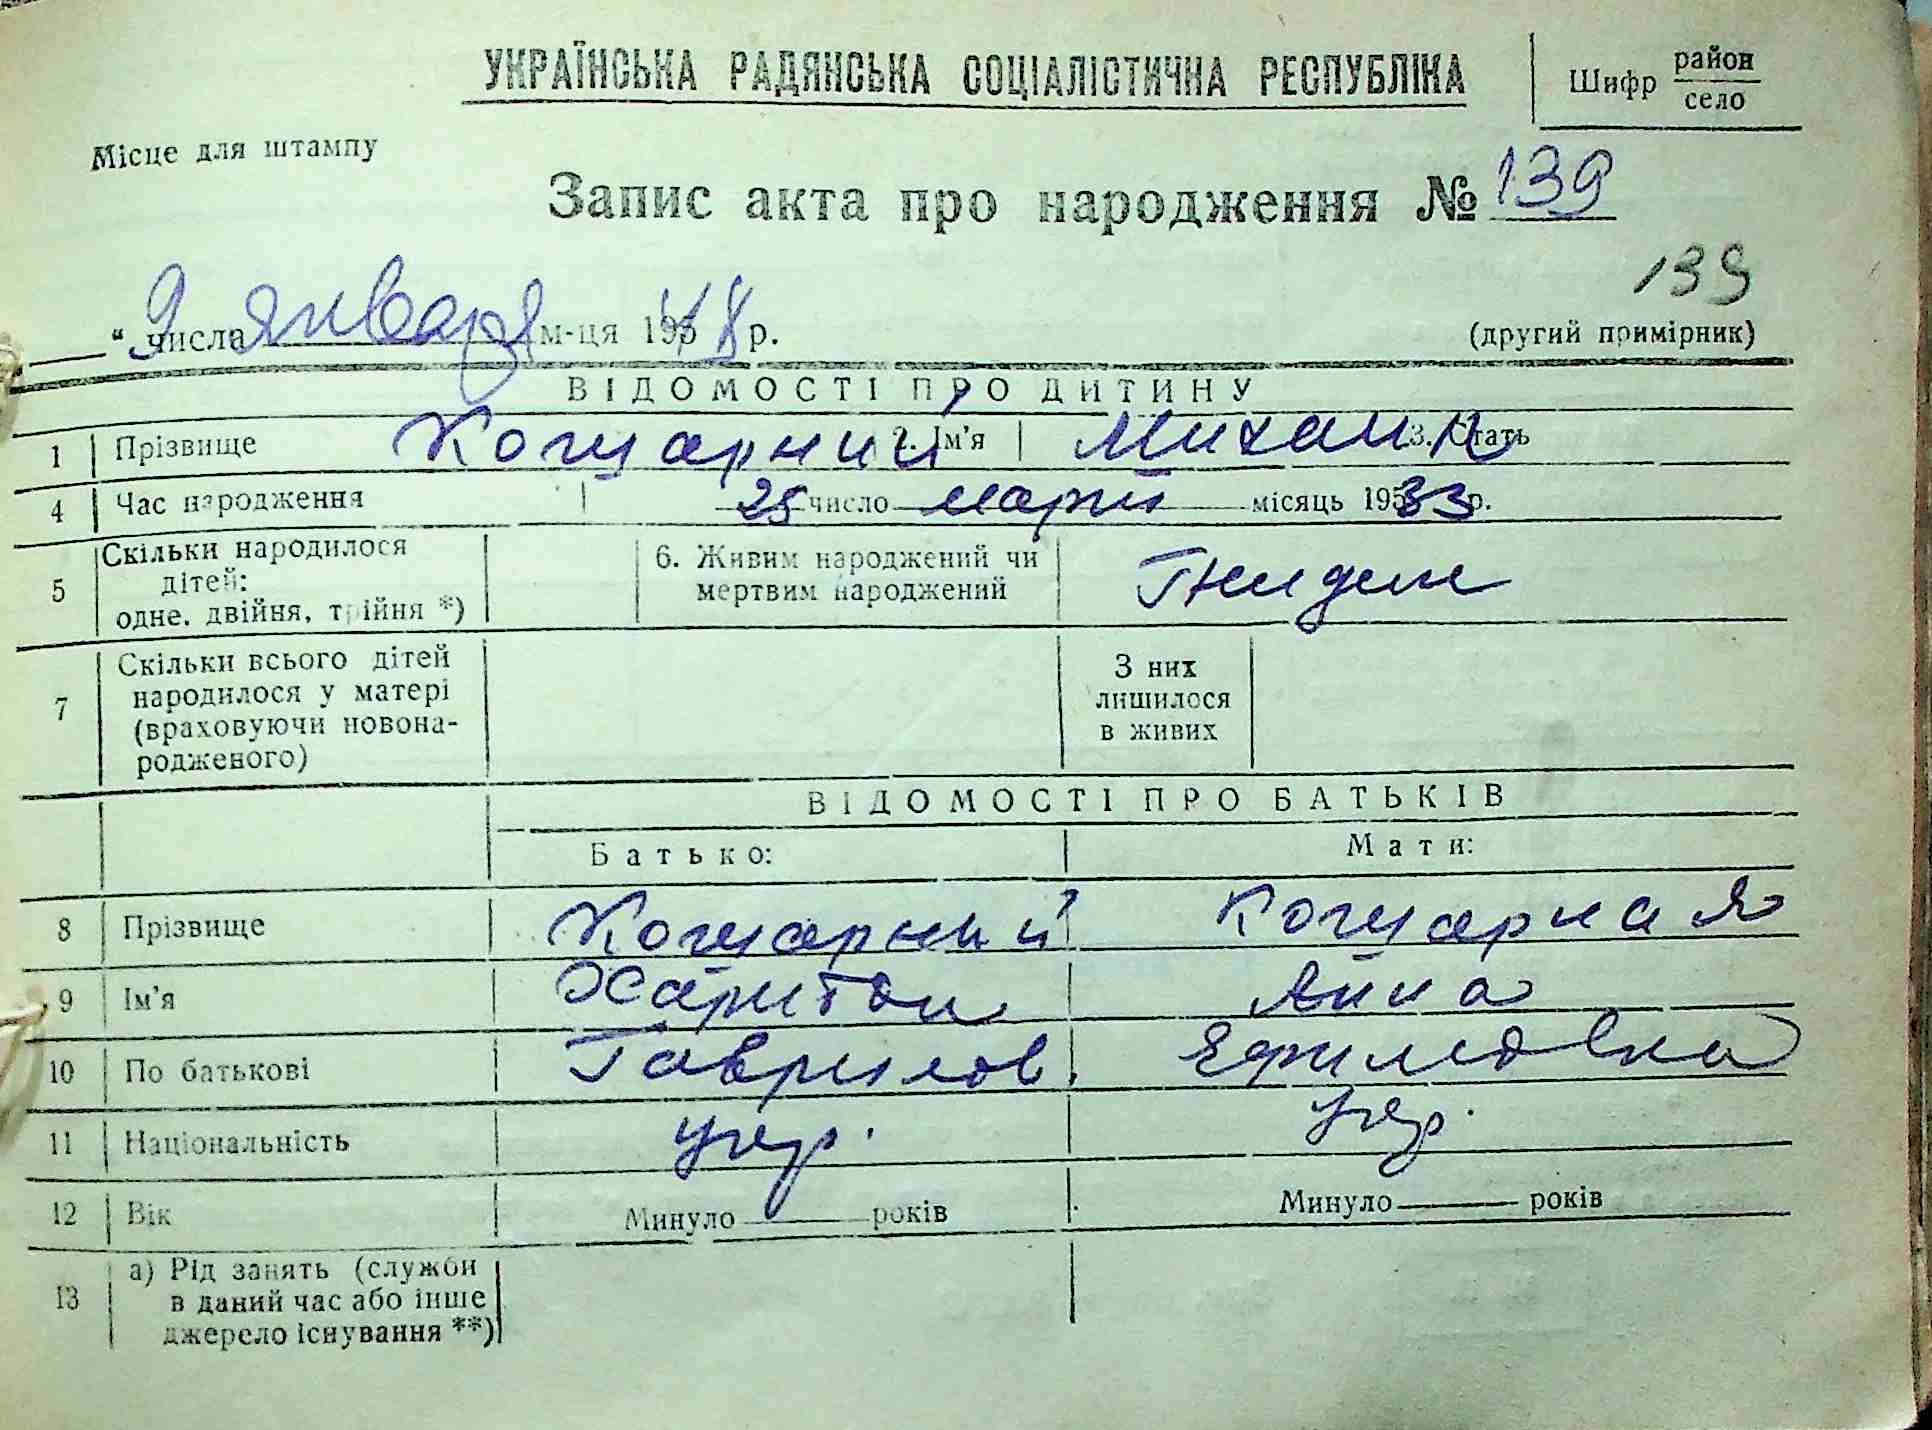 УКРАЇНСЬКА РАДЯНСЬКА СОЦІАЛІСТИЧНА РЕСПУБЛІКА
Шифр район
село
Місце для штампу
Запис акта про народження № 139
139
" 9 числа января м-ця 1948 р.
(другий примірник)
ВІДОМОСТІ ПРО ДИТИНУ
1 Прізвище Кошарний 2. Ім'я Михаил 3. Стать
4 Час народження 25 число март місяць 1933 р.
5 Скільки народилося дітей: одне. двійня, трійня *) 6. Живим народжений чи мертвим народжений
7 Скільки всього дітей народилося у матері (враховуючи новонародженого) З них лишилося в живих
ВІДОМОСТІ ПРО БАТЬКІВ
Батько: Мати:
8 Прізвище Кошарний Кошарная
9 Ім'я Харитон Анна
10 По батькові Гаврилов. Ефимовна
11 Національність укр. укр.
12 Вік Минуло років Минуло років
13 а) Рід занять (служби
в даний час або інше
джерело існування **)